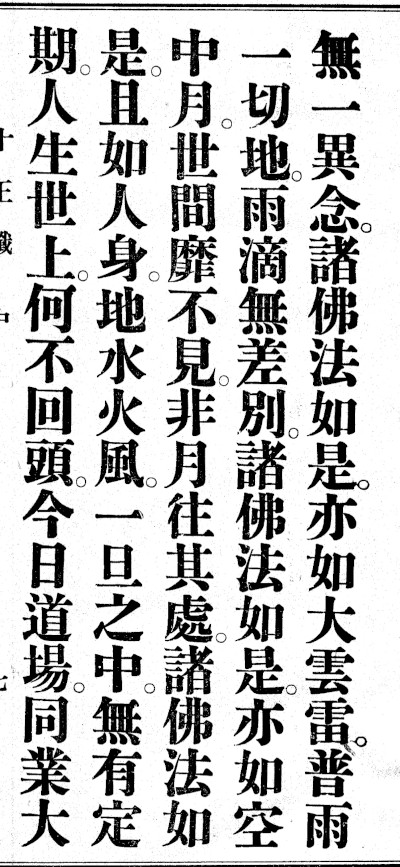 無一異念。諸佛法如是。亦如大雲雷。普雨
一切地。雨滴無差別。諸佛法如是。亦如空
中月。世間靡不見。非月往其處。諸佛法如
是。且如人身。地水火風。一旦之中。無有定
期。人生世上。何不回頭。今日道場。同業大
十王懺